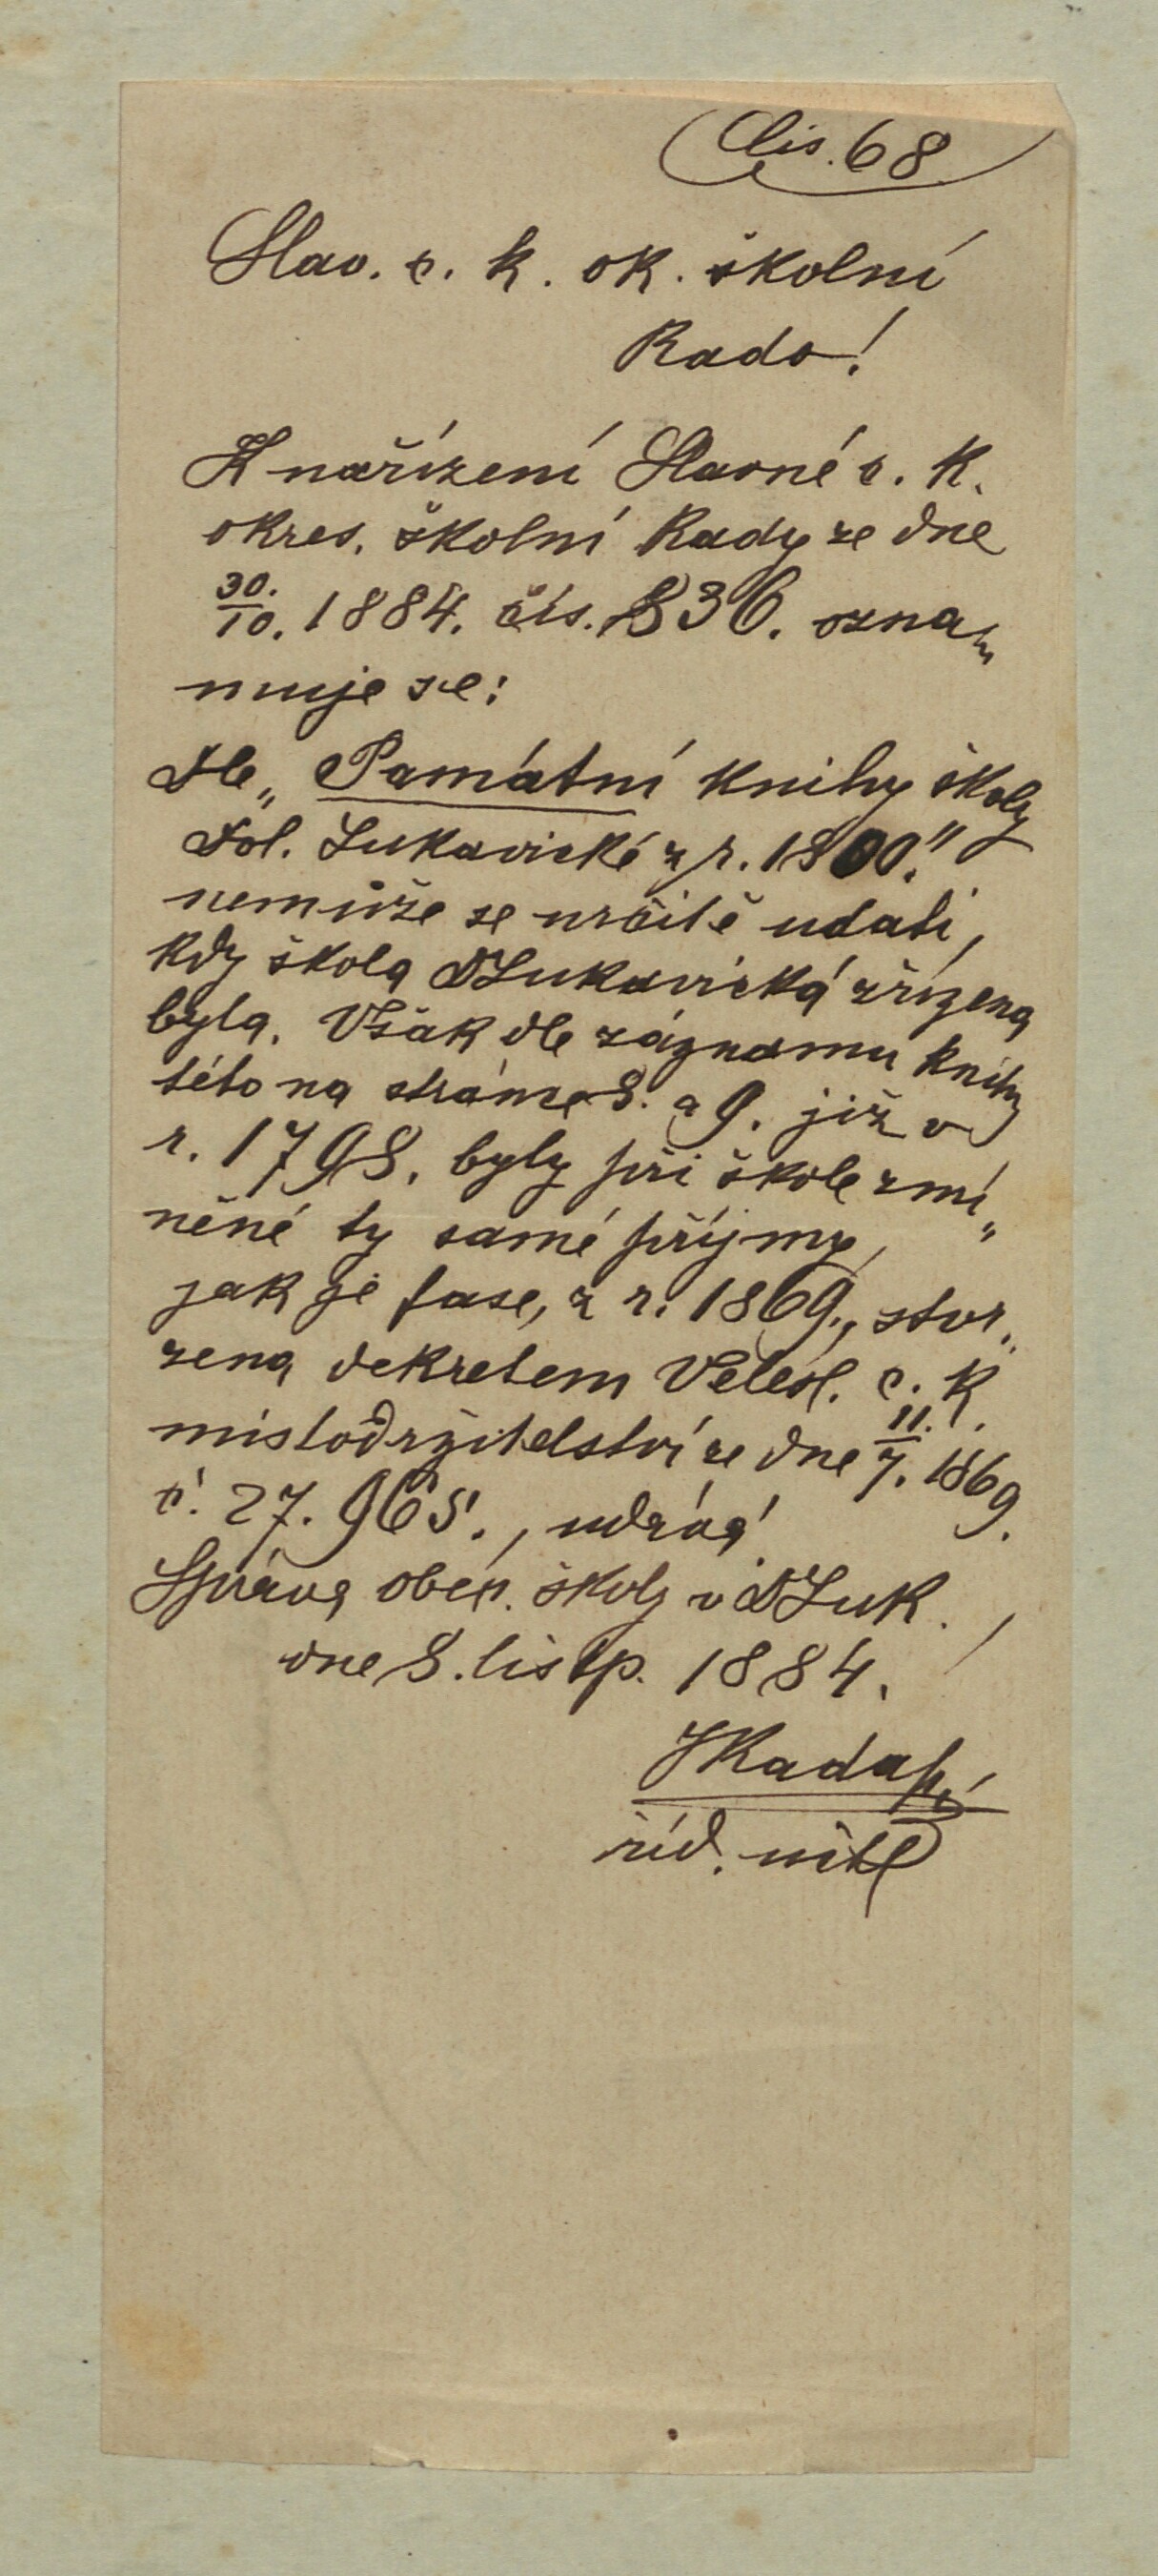 Čis. 68
Slav. c. k. ok. školní
Rado!
K nařízení Slavné c. k.
okres. školní Rady ze dne
30./10. 1884. čís. 836. ozna„
muje se:
Dle „Památní knihy školy
Dol. Lukavické z r. 1800."
nemůže se určitě udati,
kdy škola DLukavická zřízena
byla. Však dle záznamu knihy
této na stránce 8. a 9. již v
r. 1798. byly při škole zmí„
něné ty samé příjmy,
jak je fase, z r. 1869., stvr„
zena dekretem Velesl. c. k.
místodržitelství ze dne 11./7. 1869.
č. 27.965., udává.
Správa obec. školy v DLuk.
dne 8. listp. 1884.
říd. učitl